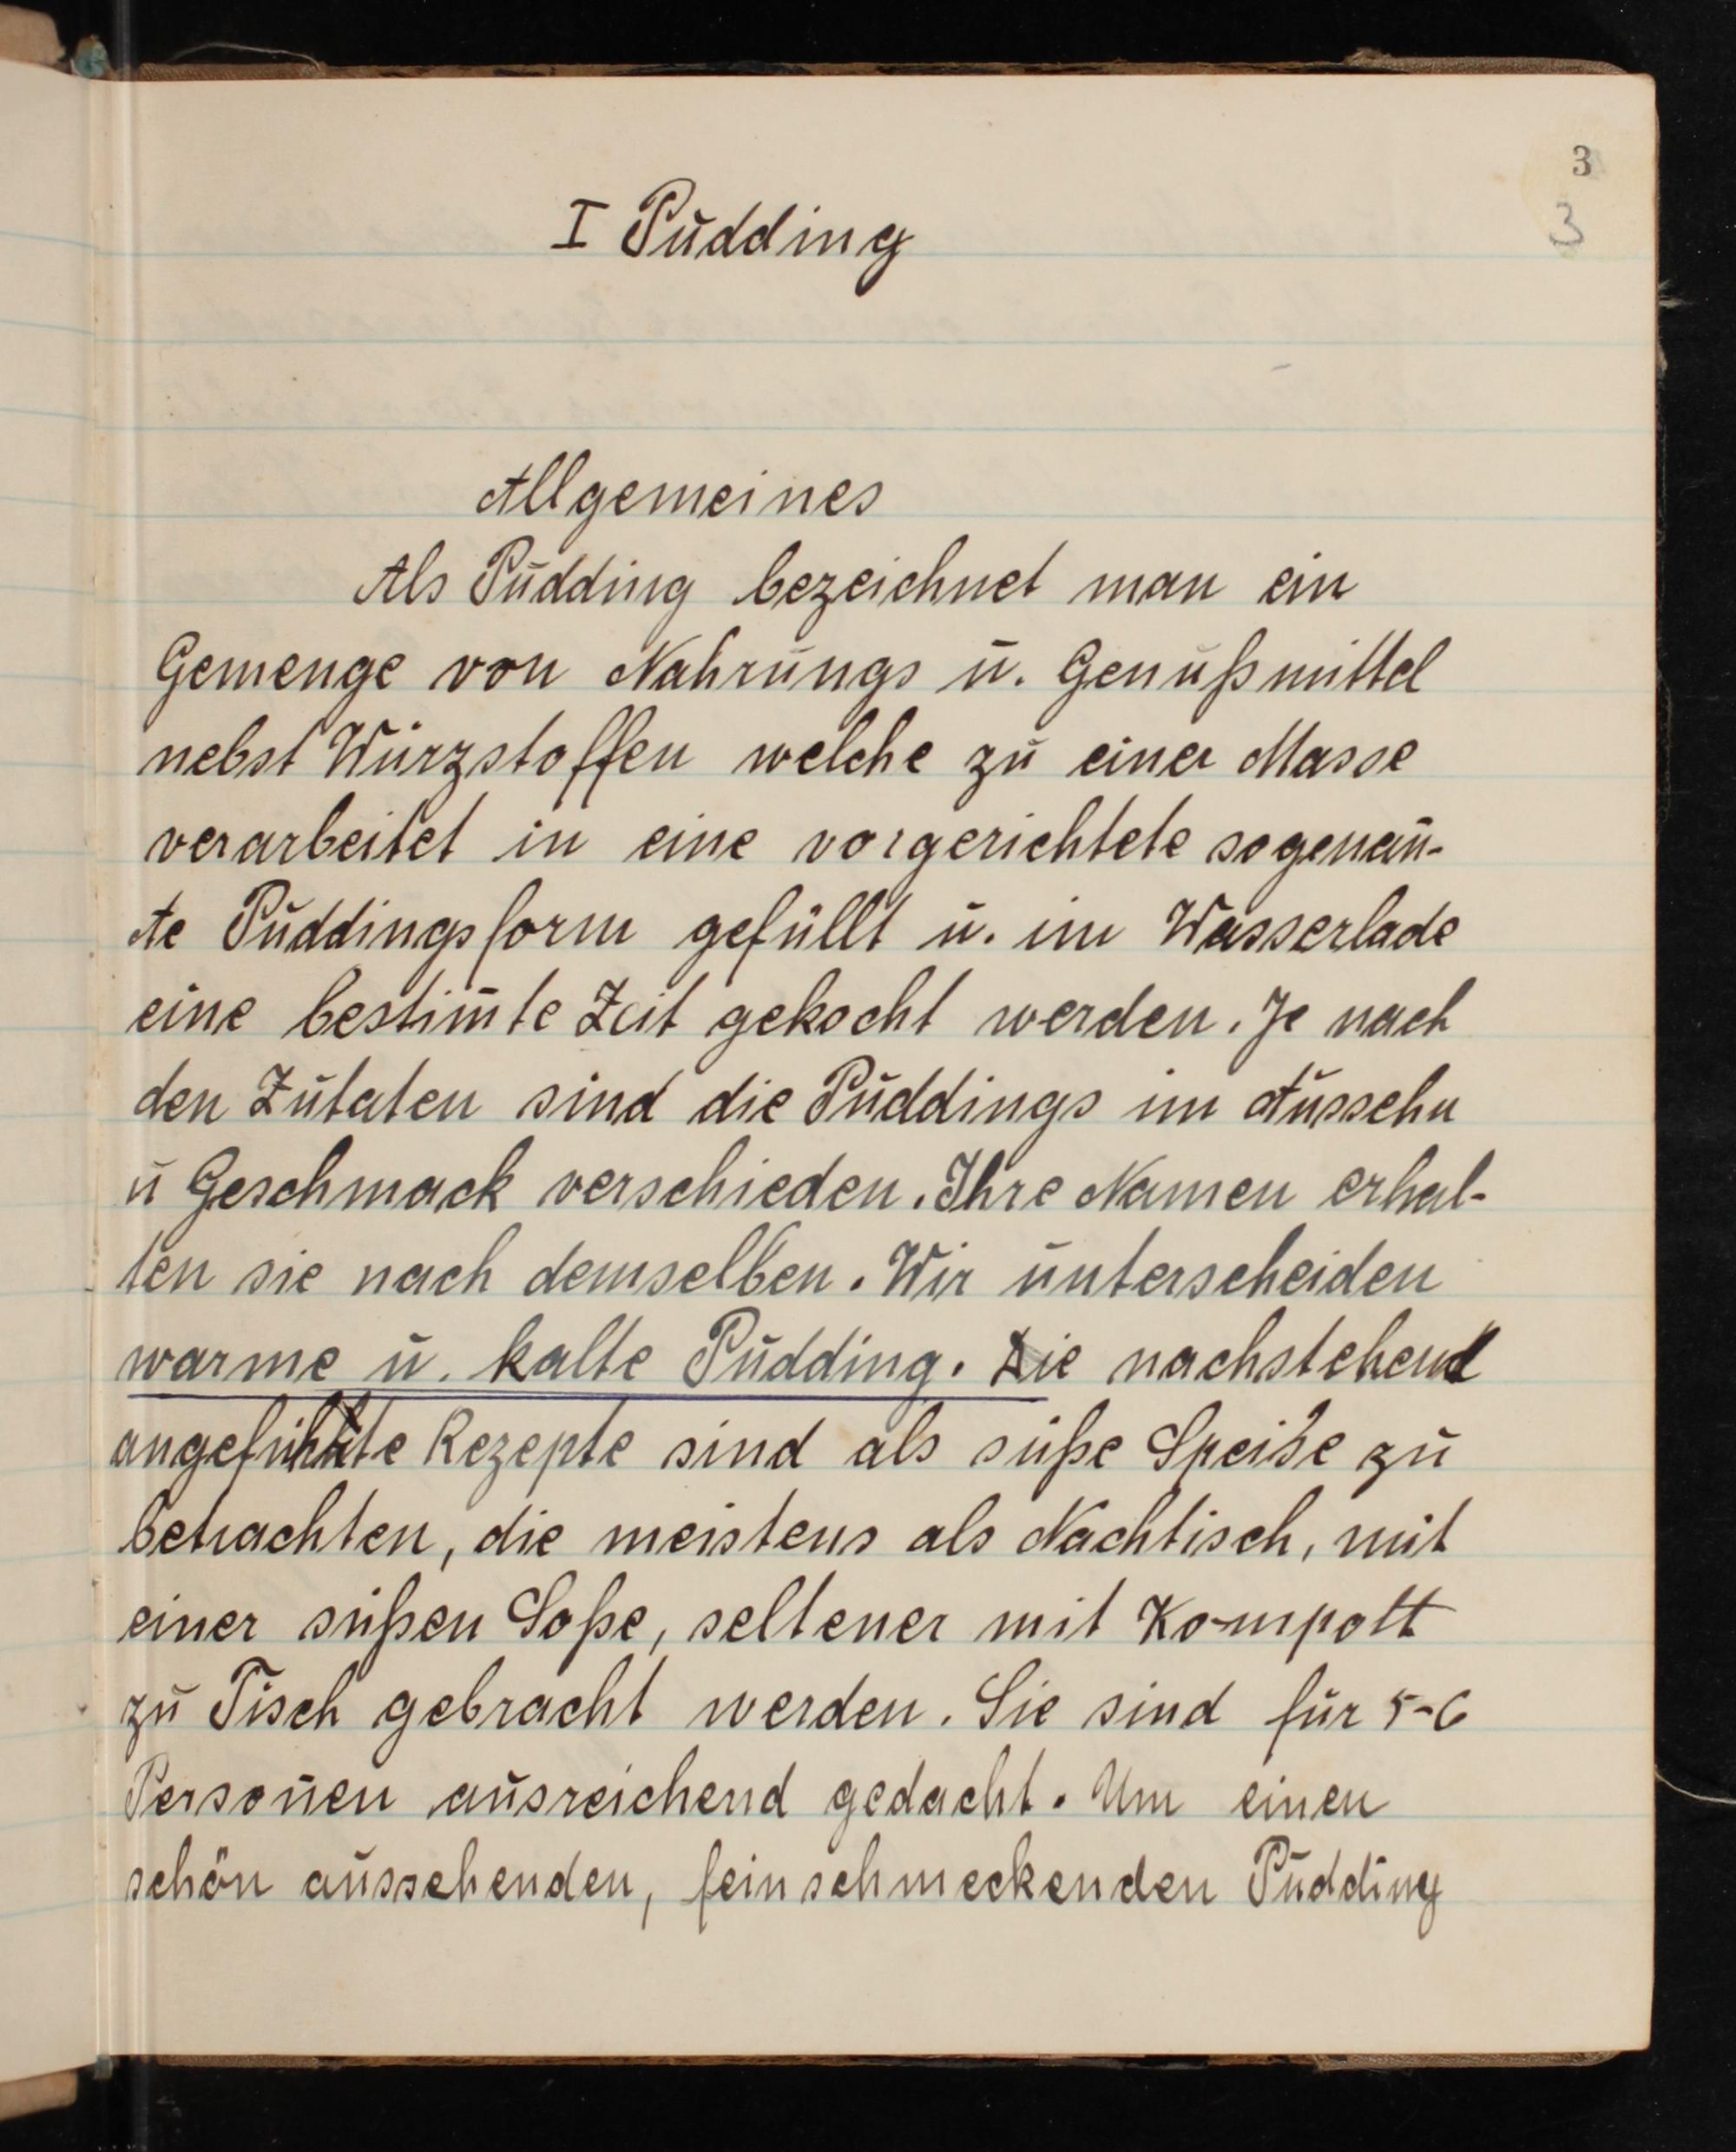 3
3
I Pudding
Allgemeines
Als Pudding bezeichnet man ein
Gemenge von Nahrungs u. Genußmittel
nebst Würzstoffen welche zu einer Masse
verarbeitet in eine vorgerichtete sogenan̄-
te Puddingsform gefüllt u. im Wasserlade
eine bestim̄te Zeit gekocht werden. Je nach
den Zutaten sind die Puddings im Aussehn
u Geschmack verschieden. Ihre Namen erhal-
ten sie nach demselben. Wir unterscheiden
warme u. kalte Pudding. Die nachstehend
angeführte Rezepte sind als süße Speise zu
betrachten, die meistens als Nachtisch, mit
einer süßen Soße, seltener mit Kompott
zu Tisch gebracht werden. Sie sind für 5-6
Personen ausreichend gedacht. Um einen
schön aussehenden, feinschmeckenden Pudding